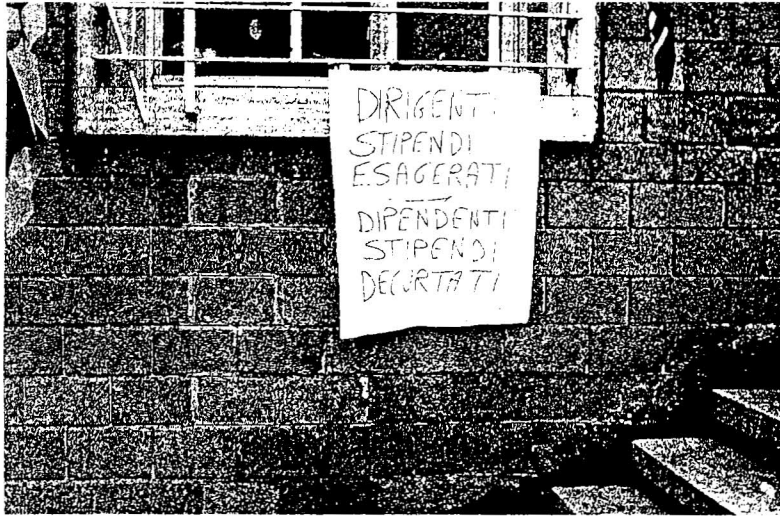 DIRIGENTI
STIPENDI
ESAGERATI
DIPENDENTI
STIPENDI
DECURTATI